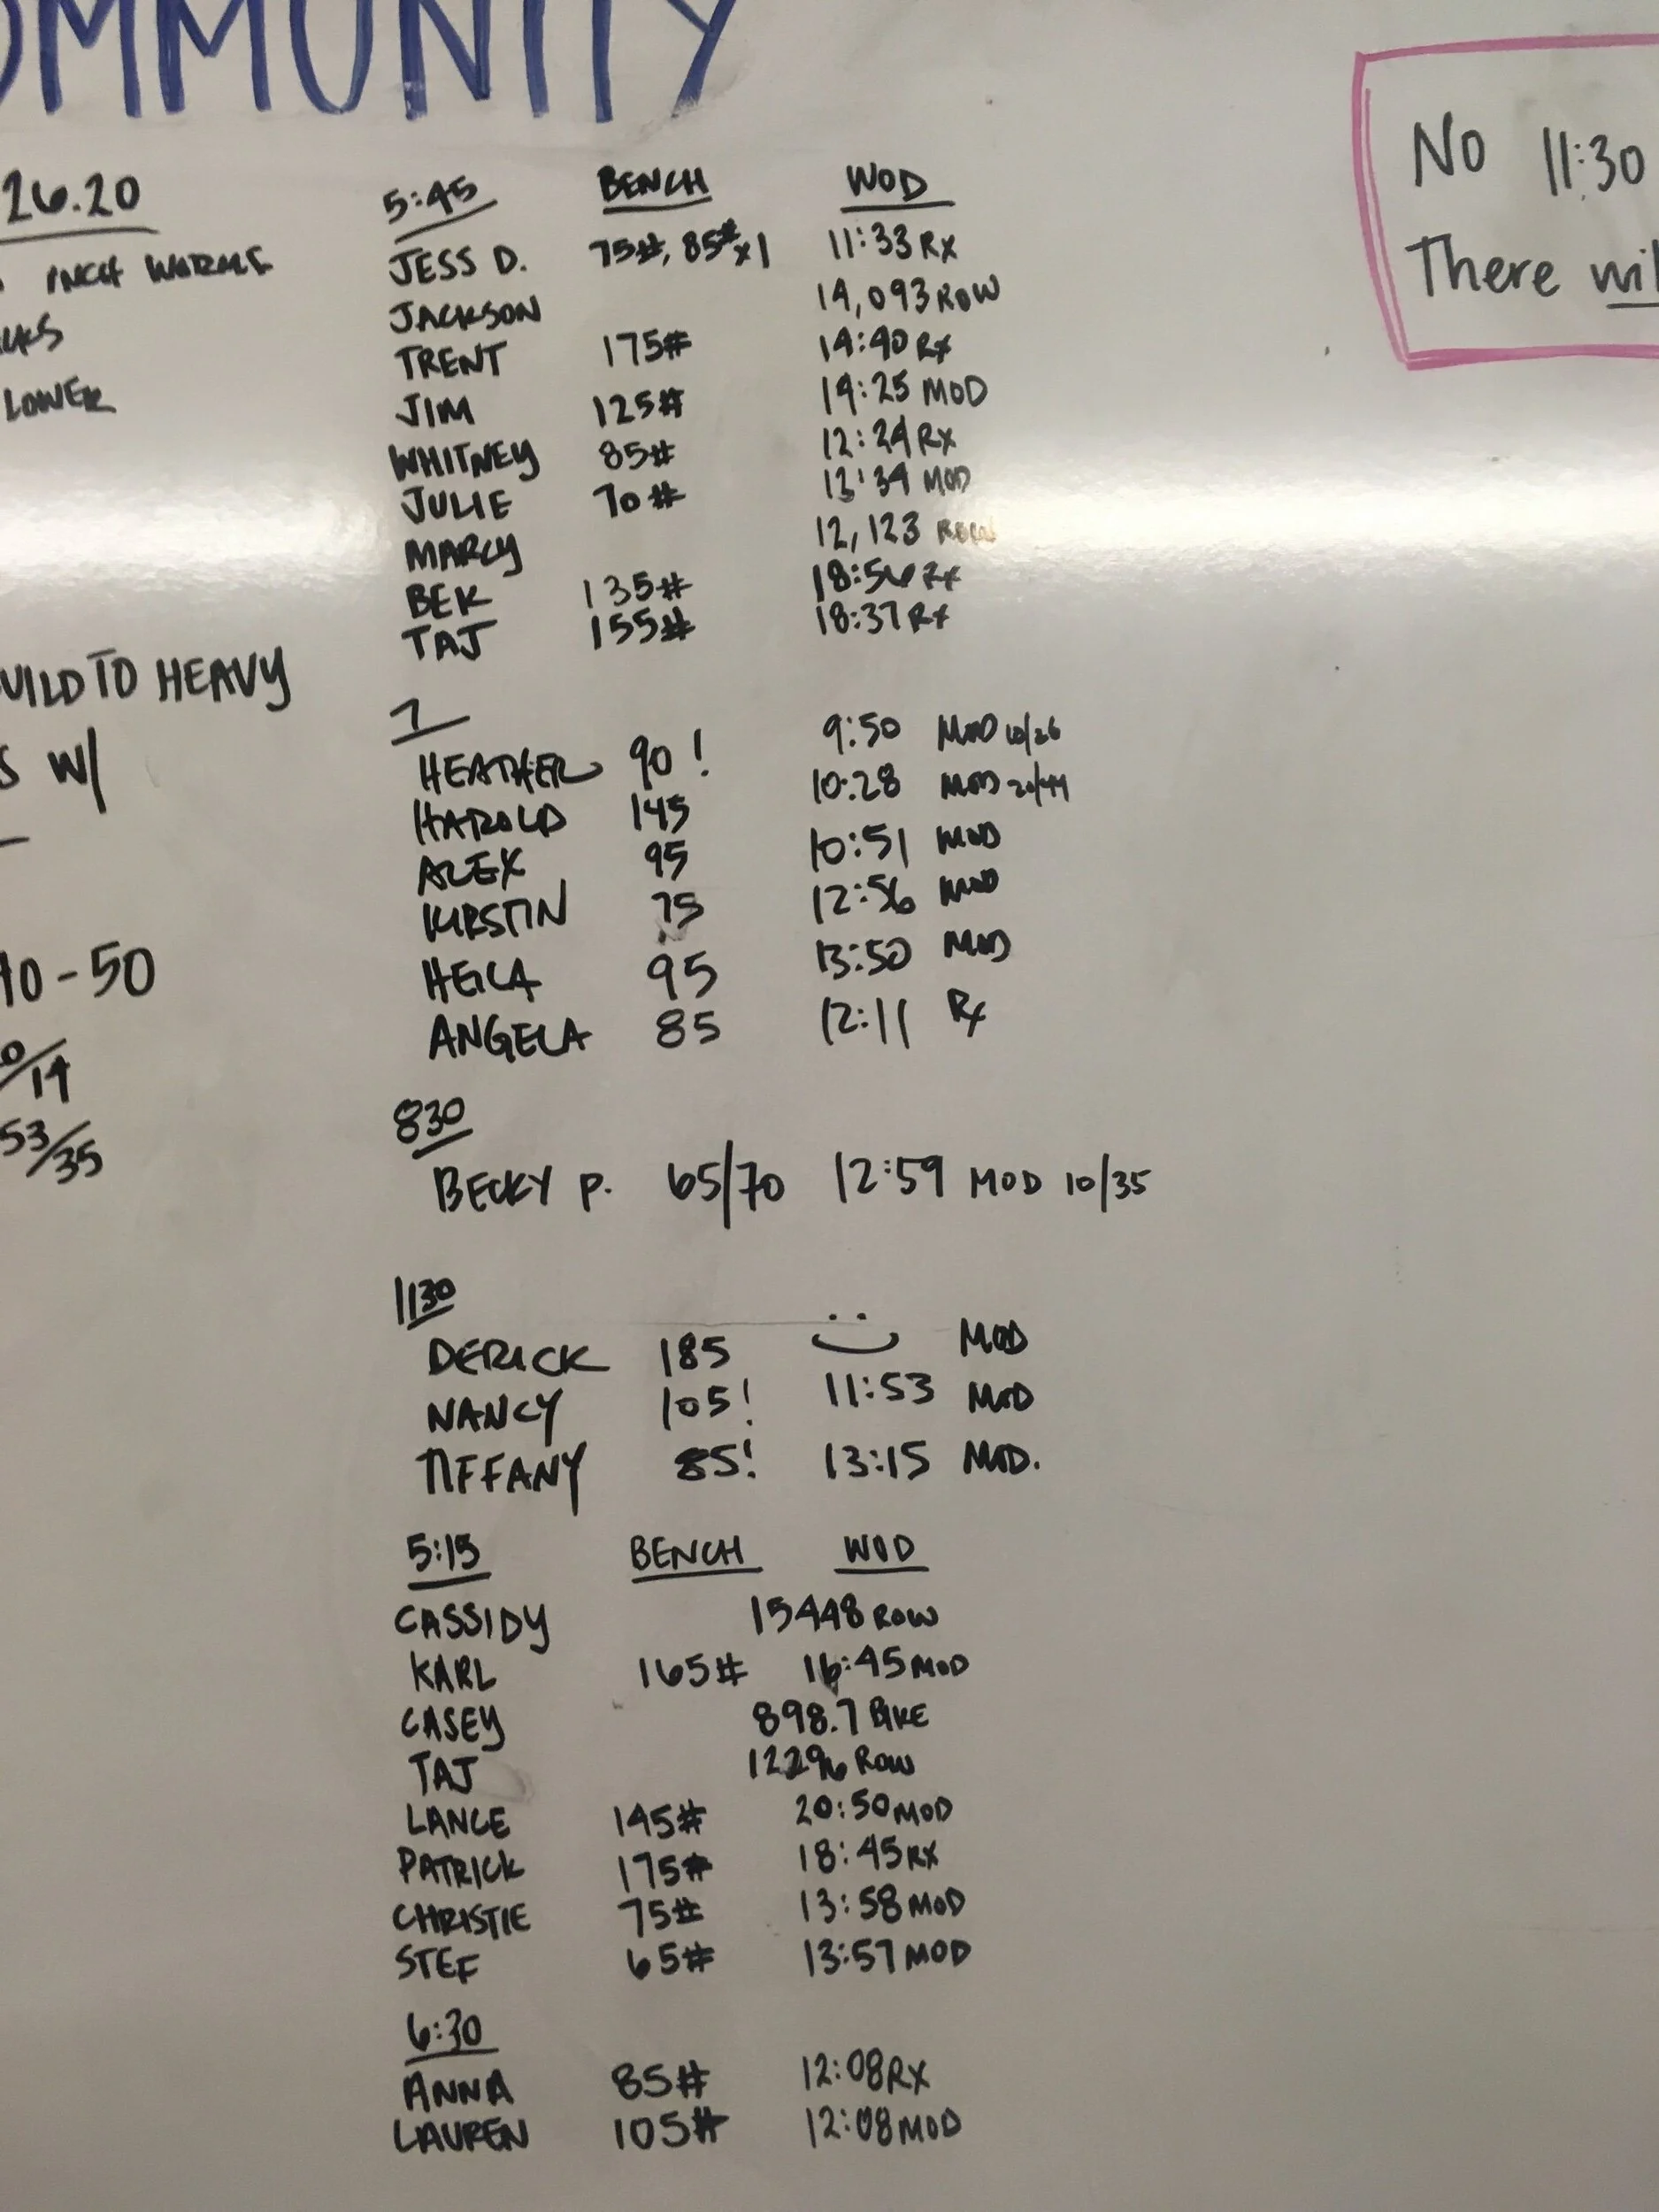 OMMUNITY
26.20
INCH WORMS
LOWER
UILD TO HEAVY
S W/
40-50
0/14
53/35
5:45 BENCH WOD
JESS D. 75#, 85#x1 11:33 RX
JACKSON 14,093 ROW
TRENT 175# 14:40 RX
JIM 125# 14:25 MOD
WHITNEY 85# 12:24 RX
JULIE 70# 13:34 MOD
MARCY 12,123 ROW
BEK 135# 18:56 RX
TAJ 155# 18:37 RX
7
HEATHER 90! 9:50 MOD 10/26
HAROLD 145 10:28 MOD 20/44
ALEX 95 10:51 MOD
KIRSTIN 75 12:56 MOD
HEILA 95 13:50 MOD
ANGELA 85 12:11 RX
830
BECKY P. 65/70 12:59 MOD 10/35
1130
DERICK 185 MOD
NANCY 105! 11:53 MOD
TIFFANY 85! 13:15 MOD.
5:15 BENCH WOD
CASSIDY 15448 ROW
KARL 165# 16:45 MOD
CASEY 898.7 BIKE
TAJ 12296 ROW
LANCE 145# 20:50 MOD
PATRICK 175# 18:45 RX
CHRISTIE 75# 13:58 MOD
STEF 65# 13:57 MOD
6:30
ANNA 85# 12:08 RX
LAUREN 105# 12:08 MOD
No 11:30
There wil